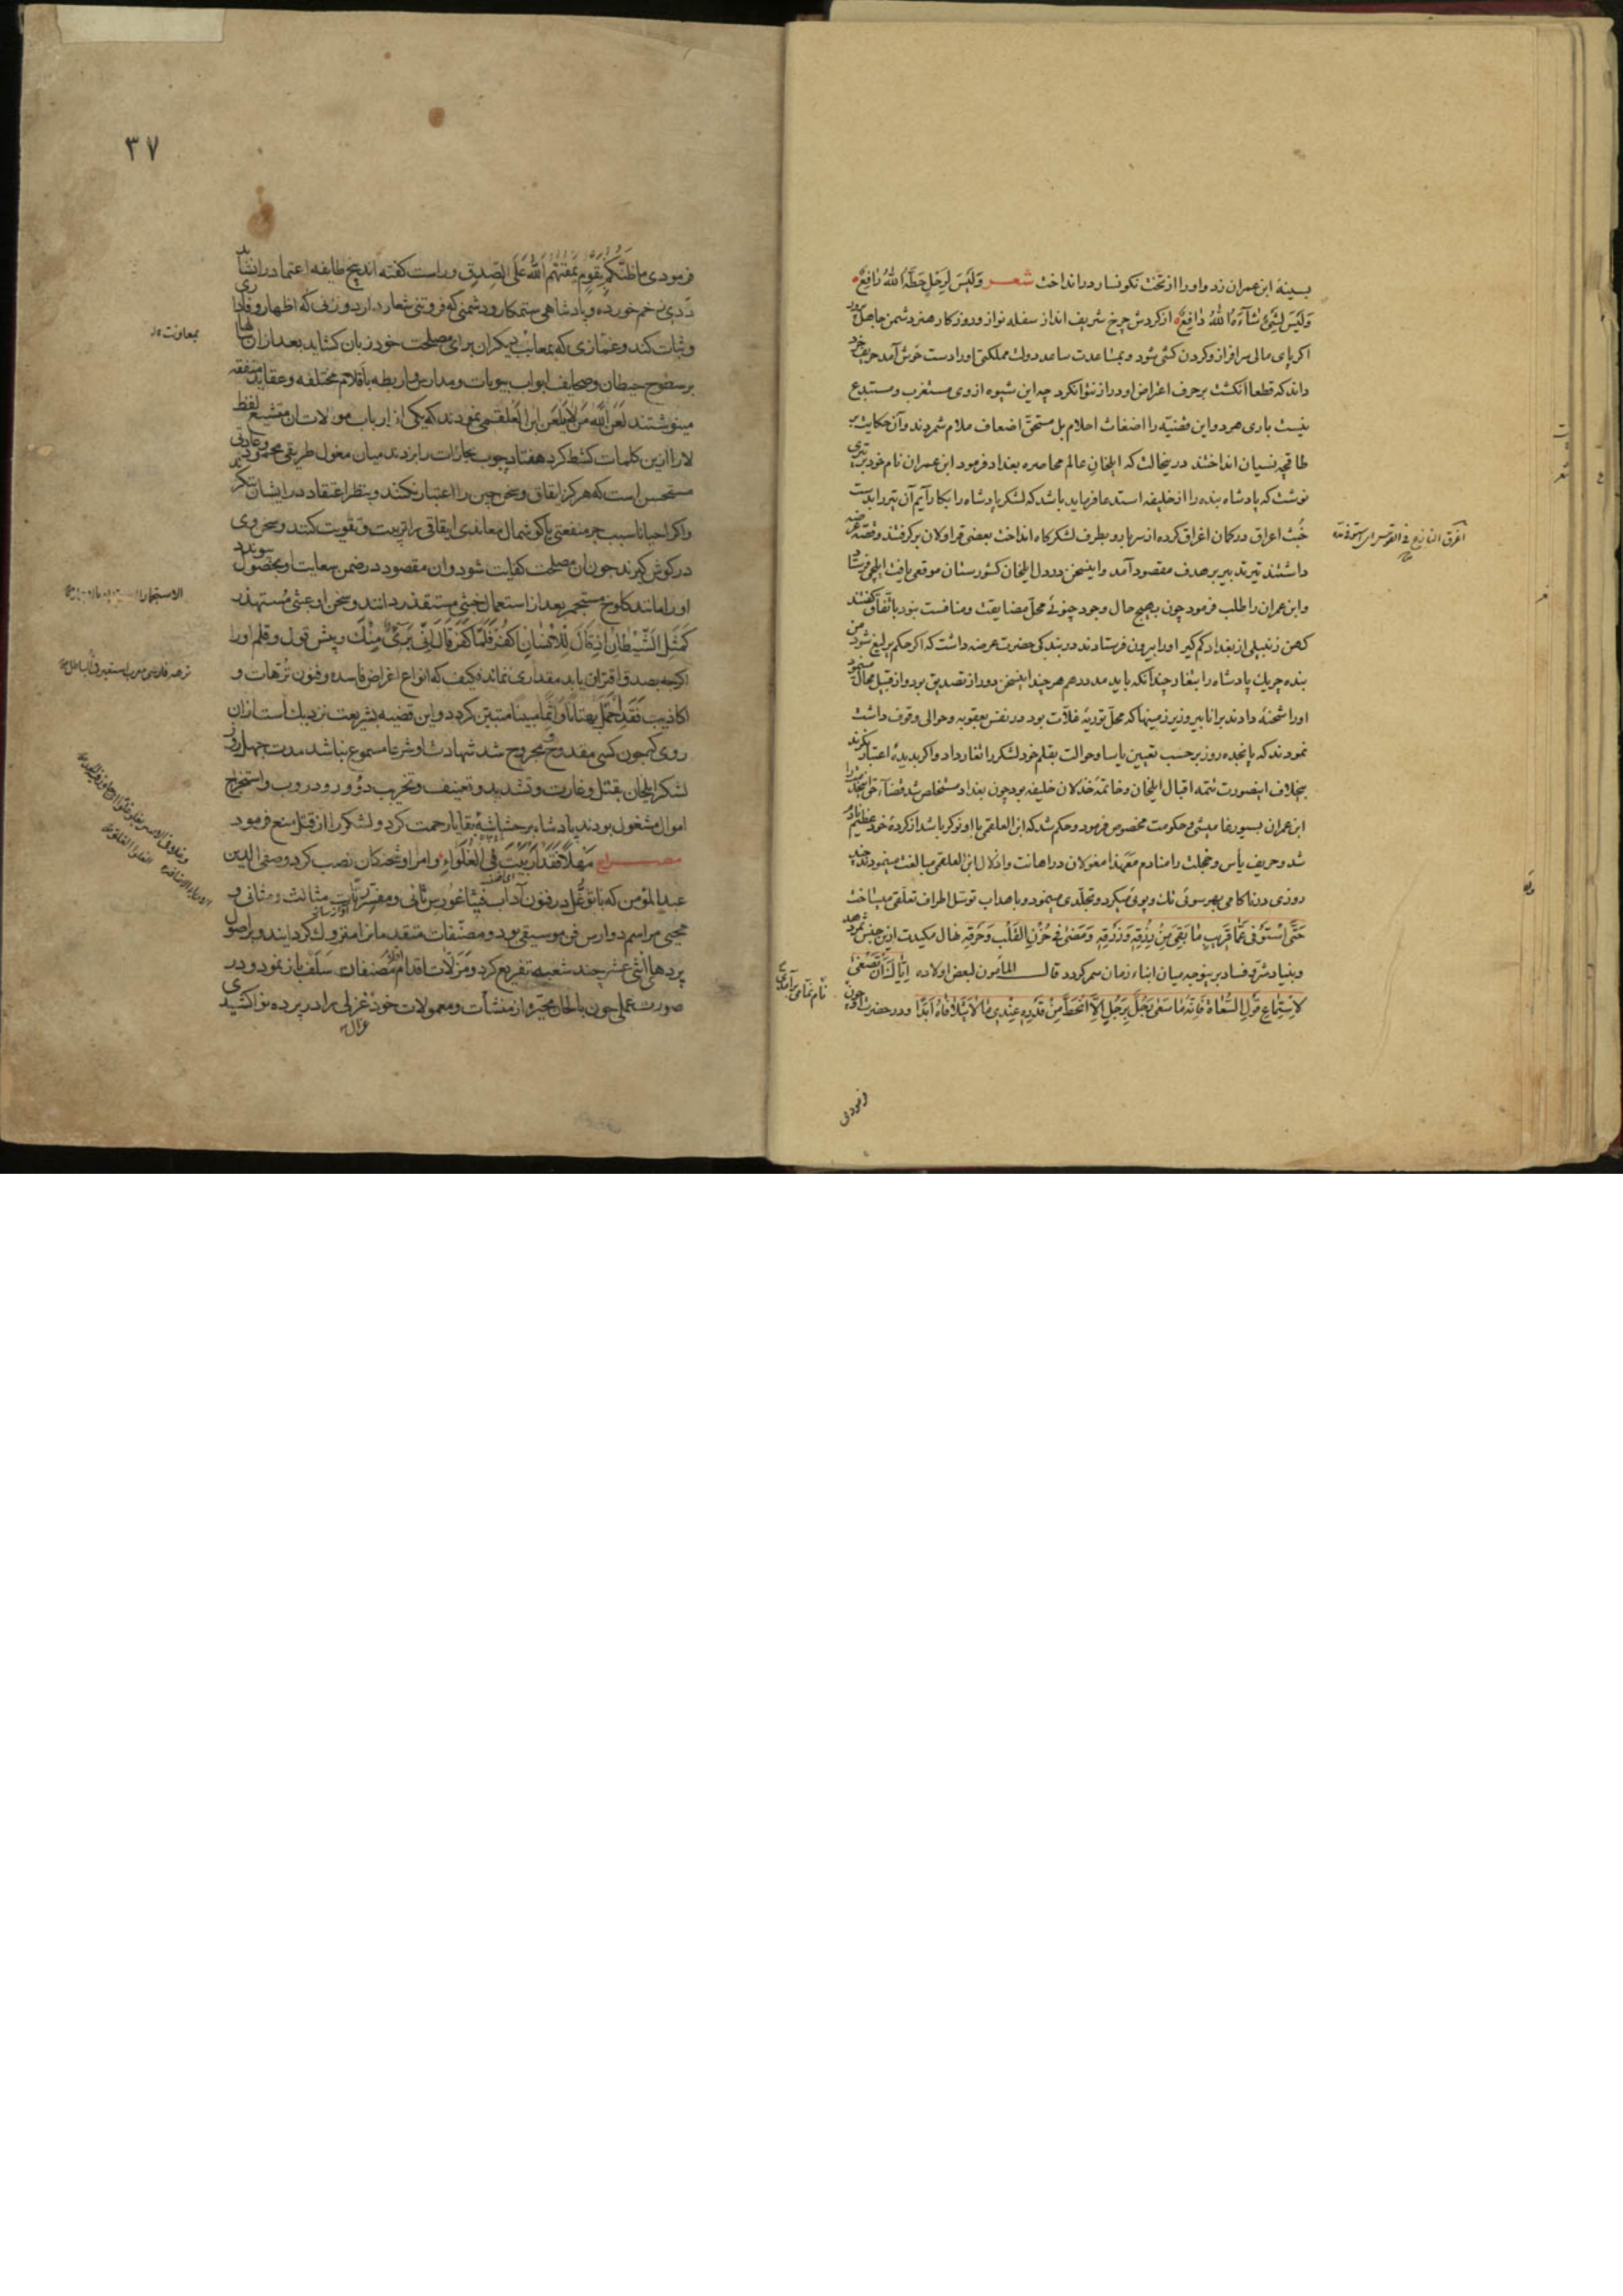 بسینهٔ ابن عمران زد و او را از تخت نکونسار در انداخت شعر وَلَیسَ لِرَجُلٍ حَطَّهُ اللهُ رافِعٌ
وَلَیسَ لِشَیءٍ شآءَهُ اللهُ دافِعٌ از کردش چرخ شریف انداز سفله نواز و روزکار هنر دشمن جاهل پرور
اکر پای مالی سرافراز و کردن کشی شود و بمساعدت ساعد دولت مملکتی او را دست خوش آمد حریف خرد
داند که قطعا انکشت بر حرف اعراض او دراز نتوانکرد چه این شیوه از وی مستغرب و مستبدع
نیست باری هر دو این قضیّه را اضغاث احلام بل مستحق اضعاف ملام شمردند و آن حکایت بر
طاقچه نسیان انداختند در ینحالت که ایلخان عالم محاصره بغداد فرمود ابن عمران نام خود بر تیری
نوشت که پادشاه بنده را از خلیفه استدعا فرماید باشد که لشکر پادشاه را بکار آیم آن تیر را بدست
خبث اعراق در کمان اغراق کرده از سر بارو بطرف لشکرکاه انداخت بعضی قراولان برکرفتند و قصّه عرضه
داشتند تیر تدبیر بر هدف مقصود آمد و اینسخن در دل ایلخان کشورستان موقعی یافت ایلچی فرستاد
و ابن عمران را طلب فرمود چون بهیچ حال وجود چنوئی محلّ مضایقت و منافست نبود باتفاق کفتند
کهن زنبیلی از بغداد کم کیر او را بیرون فرستادند در بندکی حضرت عرضه داشت که اکر حکم یرلیغ شود من
بنده چریک پادشاه را بتغار چندانکه باید مدد دهم هر چند اینسخن دور از تصدیق بود و از قبیل محال مینمود
او را شحنهٔ دادند برانا بیر و زیرزمینها که محلّ تودیهٔ غلّات بود در نفس یعقوبه و حوالی وقوف داشت
نمودند که پانجده روز بر حسب تعیین یاسا و حوالت بقلم خود لشکر را تغار داد و اکر بدیدهٔ اعتبار نکرند
بخلاف اینصورت تتمه اقبال ایلخان و خاتمهٔ خذلان خلیفه بود چون بغداد مستخلص شد قضآء حق اینخدمت را
ابن عمران بسیورغامیشی و حکومت مخصوص فرمود و حکم شد که ابن العلقمی با او نوکر باشد از کردهٔ خود عظیم نادم
شد و حریف یأس و خجلت را منادم مَعَ هذا مغولان در اهانت و اذلال ابن العلقمی مبالغت مینمودند چند
روزی در ناکامی بهر سوئی تک و پوئی میکرد و تجلّدی مینمود و باهداب توسّل اطراف تعلّقی میساخت
حَتّی اسْتَوفی عَمّا قَریبٍ ما بَقِیَ مِن رِزقِهِ وَزَرَقِهِ وَمَضی فی حُزْنِ القَلْبِ وَحَرَقِهِ نهال مکیدت ازین جنس ثمر دهد
و بنیاد شرّ و فساد برینوجه میان ابناء زمان سمر کردد قال المأمون لبعض اولاده اِیّاکَ اَن تُصْغِیَ
لاستِماعِ قَولِ السُّعاة فَاِنَّهُ ما سَعی رَجُلٌ بِرَجُلٍ اِلّا انحَطَّ مِن قَدْرِهِ عِنْدِی ما لا یَتَلافاهُ اَبَدًا و در حضرت او چون
فرمودی
۳۷
فرمودی ما ظَنُّکُم بِقَومٍ یَمْقُتُهُمُ اللهُ عَلَی الصِّدقِ و راست کفته اند بچ طایفه اعتماد را نشاید
دَدِی زخم خورده و پادشاهی ستمکار و دشمنی که فروتنی شعار دارد و زنی که اظهار وفاداری
و ثبات کند و غمّازی که بمعایب دیکران برای مصلحت خود زبان کشاید بعد از ان شبها
بر سطوح حیطان و صحایف ابواب بیوتات و مدارس و اربطه باقلام مختلفه و عقاید متفقه
مینوشتند لَعَنَ اللهُ مَن لا یَلعَن ابن العلقمی نمودند که یکی از ارباب موالات ان متشیع لفظ
لا را ازین کلمات کشط کرد هفتاد چوب مجازات را بزدند میان مغول طریقی محمود و عادتی
مستحسن است که هرکز ایقاق و سخن چین را اعتبار نکنند و بنظر اعتقاد در ایشان ننکرند
و اکر احیانا سبب جر منفعتی یا کوشمال معاندی ایقاقی را تربیت و تقویت کنند و سخن وی
در کوش کیرند چون ان مصلحت کفایت شود و ان مقصود در ضمن سعایت او بحصول پیوندد
او را مانند کلوخ مستجمر بعد از استعمال خبثی مستقذر دانند و سخن او عبثی مستهذر
کَمَثَلِ الشَّیْطانِ اِذْ قالَ لِلاِنْسانِ اکْفُرْ فَلَمّا کَفَرَ قالَ اِنّی بَرِیءٌ مِنْکَ و پیش قول و قلم او را
اکرچه بصدق اقتران یابد مقداری نماند فکیف که انواع اغراض فاسده و فنون تُرّهات و
اکاذیب فَقَدِ احْتَمَلَ بُهتاناً وَاِثماً مُبیناً متبیّن کردد و این قضیه بشریعت نزدیک است از ان
روی که چون کسی مقدوح و مجروح شد شهادت او شرعا مسموع نباشد مدت چهل روز
لشکر ایلخان بقتل و غارت و تشدید و تعنیف و تخریب دُوْر و دروب و استخراج
اموال مشغول بودند پادشاه بر حشاشهٔ بقایا رحمت کرد و لشکر را از قتل منع فرمود
مصراع مَهلاً فَقَد اَرْبَیتَ فی الغُلَواءِ و امرا و شحنکان نصب کرد و صفی الدین
عبد المؤمن که با توغُّل در فنون آداب فیثاغورس ثانی و مفسّر رنّات مثالث و مثانی و
محیی مراسم دوارس فن موسیقی بود و مصنّفات متقدمانرا متروک کردانید و بر اصول
پردها اثنی عشر چند شعبه تفریع کرد و مَزلّات اقدام مصنفات سَلَف باز نمود و در
صورت عملی چون بالحان مخیّر و از منشآت و معمولات خود غزلی را در پرده نوا کشیدی